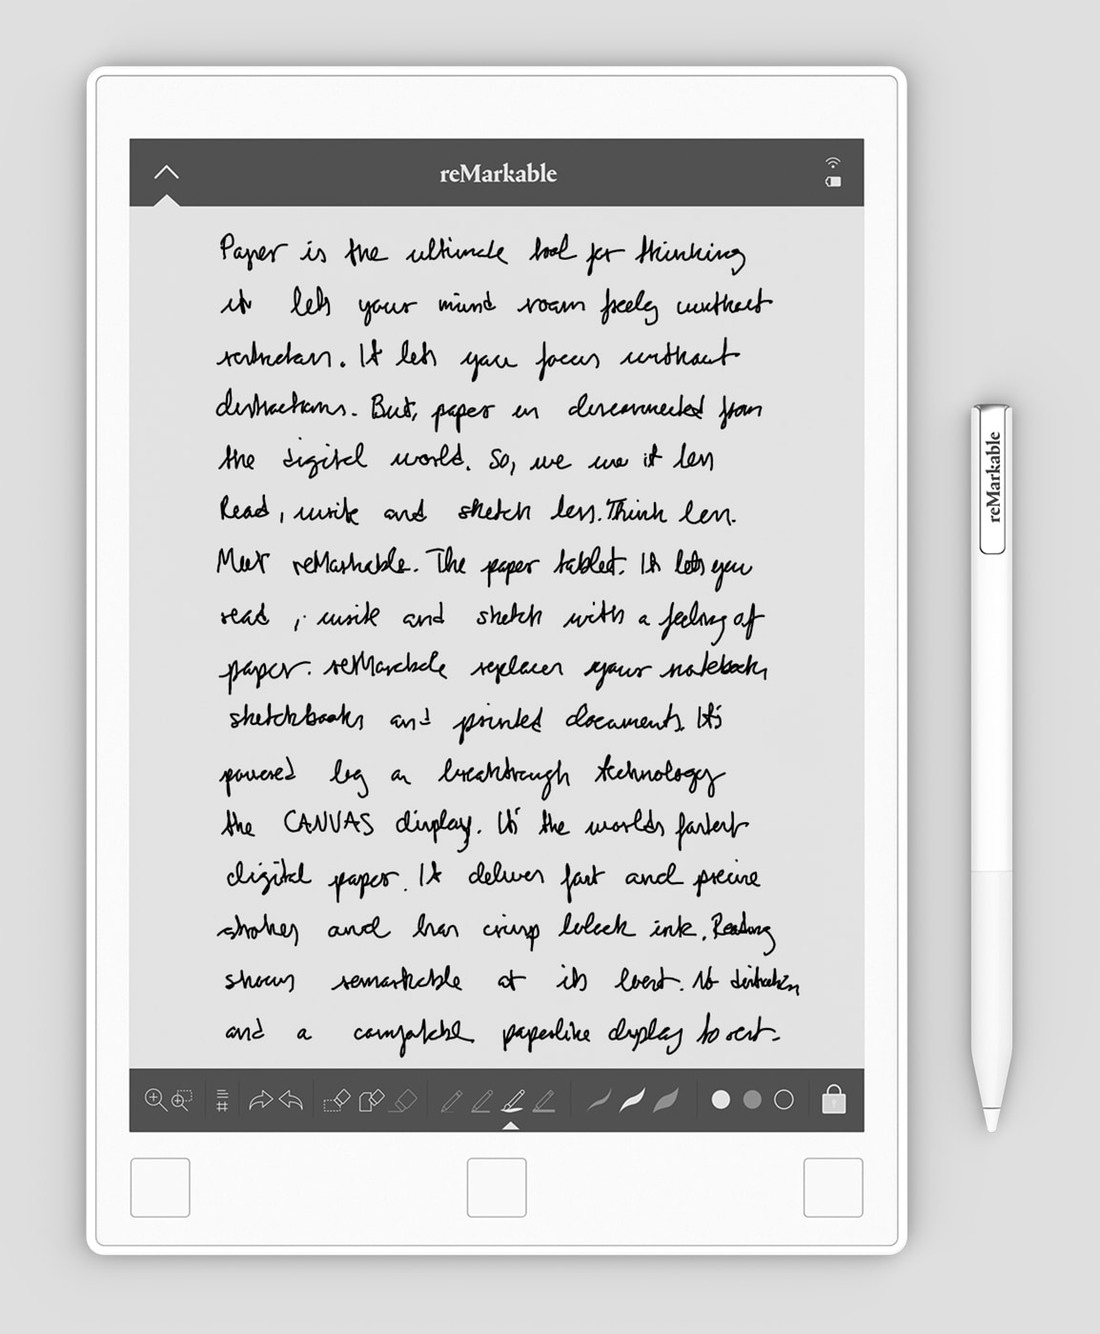 reMarkable
Paper is the ultimate tool for thinking
it lets your mind roam freely without
restriction. It lets you focus without
distractions. But, paper is disconnected from
the digital world. So, we use it less
Read, write and sketch less. Think less.
Meet reMarkable. The paper tablet. It lets you
read, write and sketch with a feeling of
paper. reMarkable replaces your notebooks,
sketchbooks and printed documents. It's
powered by a breakthrough technology
the CANVAS display. It's the worlds fastest
digital paper. It delivers fast and precise
strokes and has crisp black ink. Reading
shows remarkable at its best. No distraction,
and a comfortable paperlike display to rest.
reMarkable